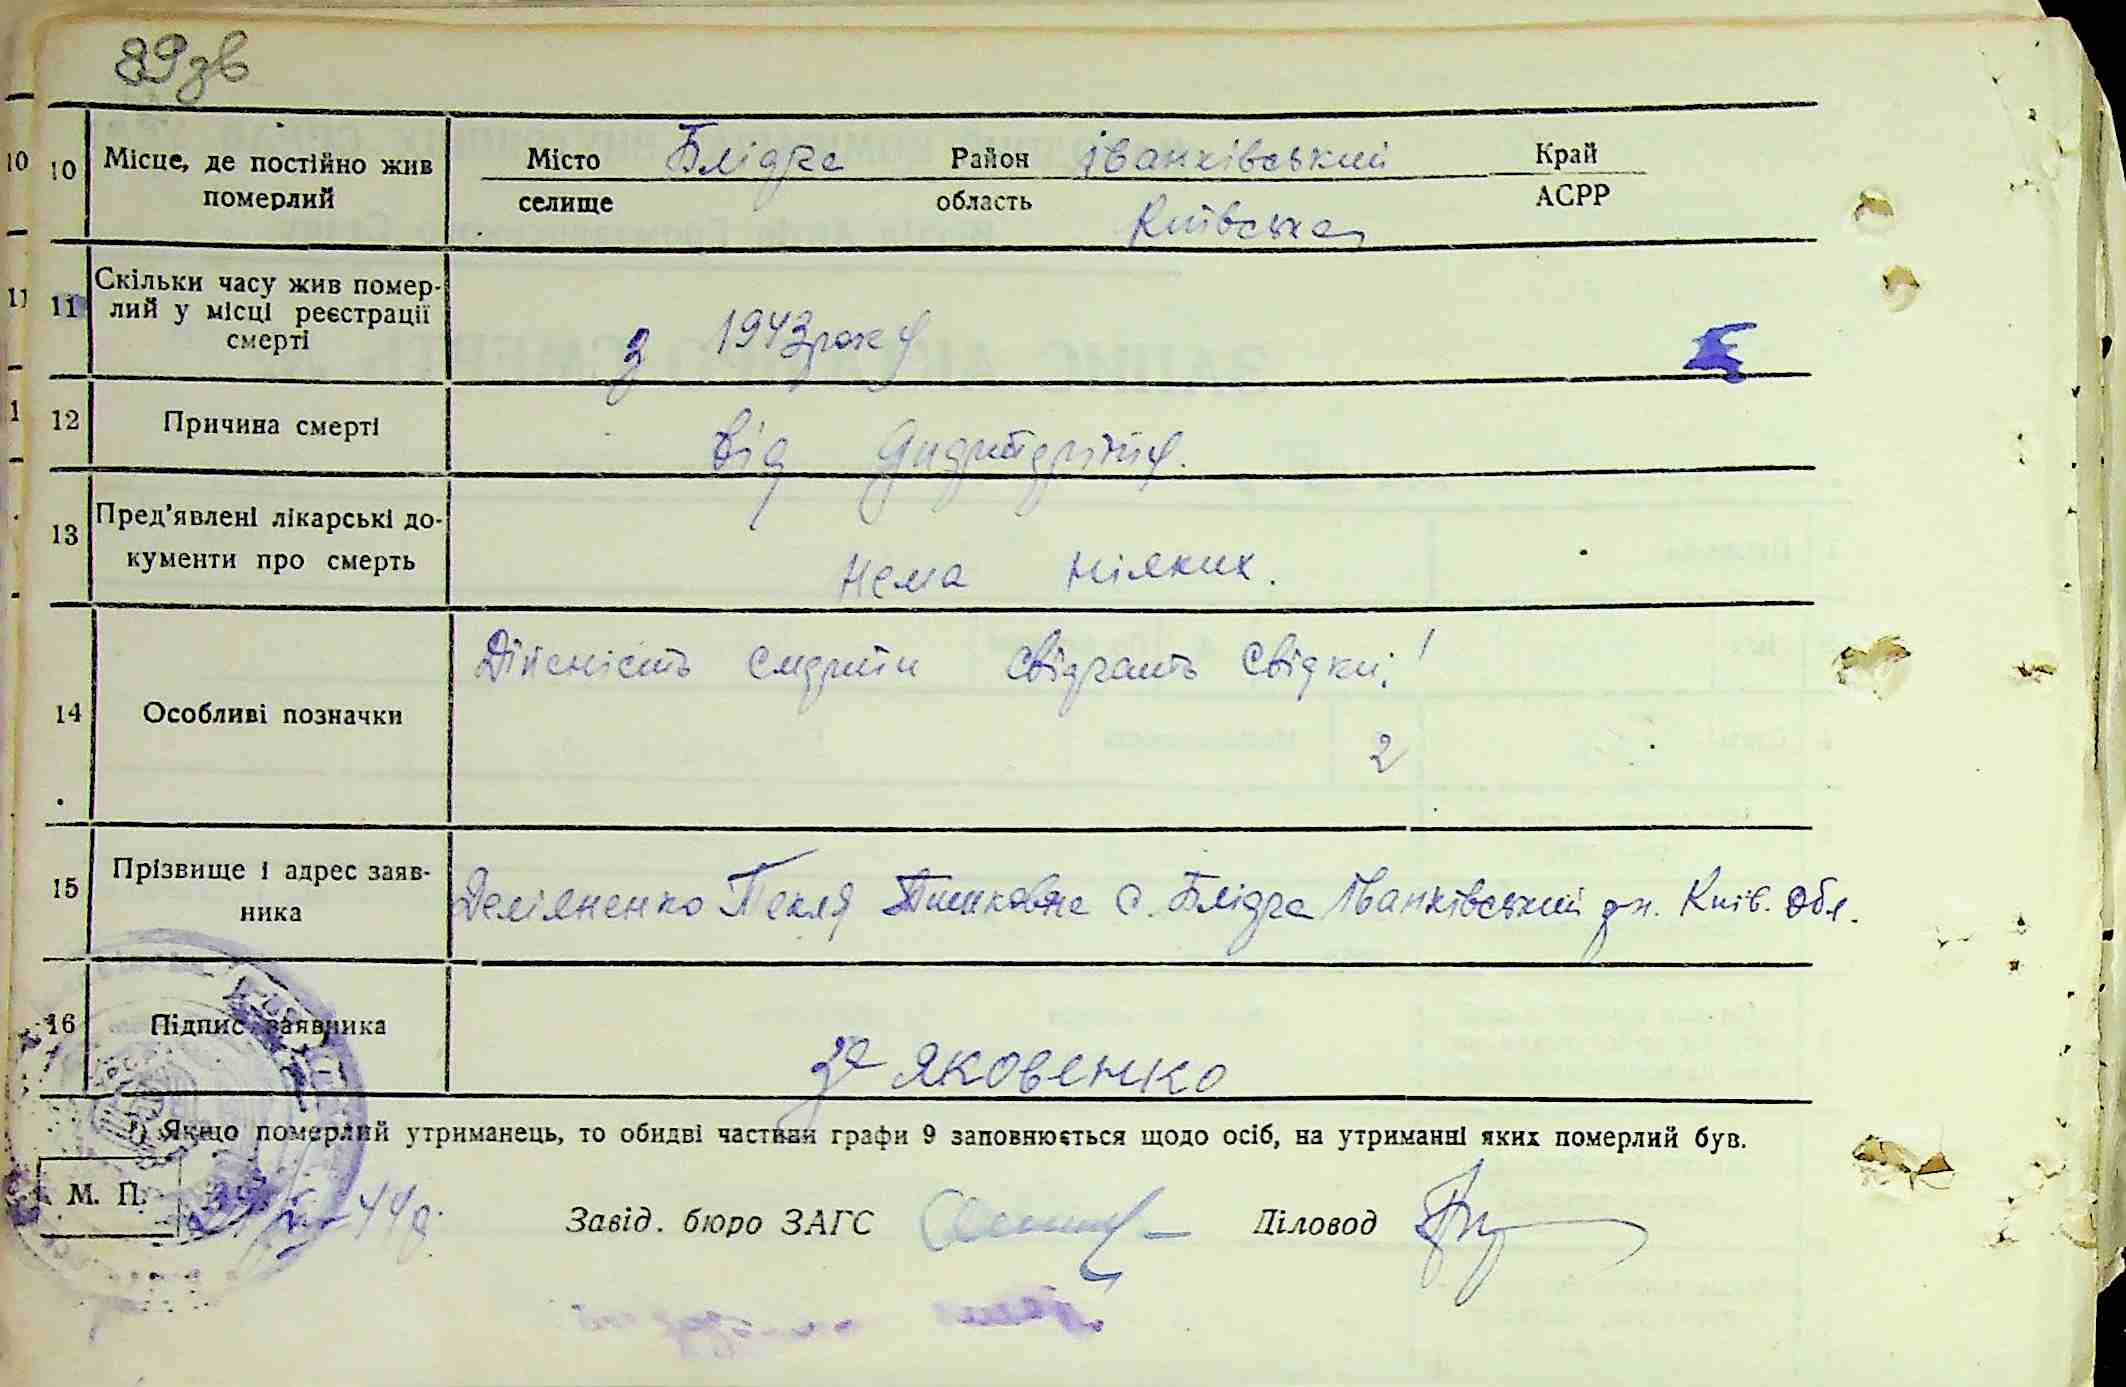 89зв
10 Місце, де постійно жив померлий Місто Блідча Район іванківський Край
селище область Київська АСРР
11 Скільки часу жив помер-
лий у місці реєстрації
смерті
з 1943 року
12 Причина смерті від
13 Пред'явлені лікарські до-
кументи про смерть
нема ніяких.
14 Особливі позначки
Дійсність смерти свідчать свідки:
2
15 Прізвище і адрес заяв-
ника
Деміяненко Текля с. Блідча Іванківський рн. Київ. обл.
16 Підпис заявника
за Яковенко
¹) Якщо померлий утриманець, то обидві частини графи 9 заповнюється щодо осіб, на утриманні яких померлий був.
М. П. 44р.
Завід. бюро ЗАГС Діловод